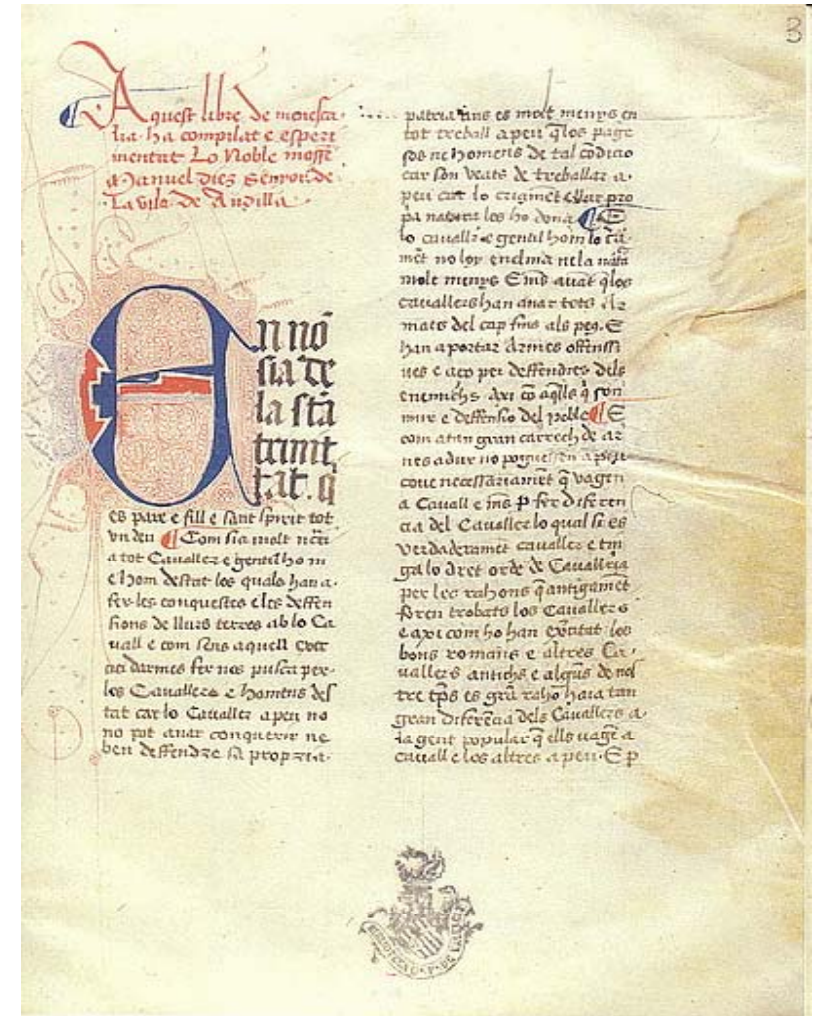 3
Aquest libre de menesca
lia ha compilat e esperi
mentat Lo Noble mossẽ
Manuel diez Senyor de
La vila de Andilla
An nõ
sia de
la stã
trinit
tat. q̃
es pare e fill e sant spirit tot
vn deu ¶ Com sia molt nc̃ri
a tot Caualler e gentil hom
e hom destat los quals han a
fer les conquestes e les deffen
sions de llurs terres ab lo Ca
uall e com sens aquell exer
cici darmes fer nos pusca per
los Cauallers e homens des
tat car lo Caualler a peu no
no pot anar conquerir ne
ben deffendre sa propria
patria ans es molt menys en
tot treball a peu q̃ los page
sos ne homens de tal cõdicio
car son vsats de treballar a
peu car lo criamẽt e llur pro
pa natura los ho dona ¶ E
lo cauallr̃ e gentil hom lo c̃ia
mẽt no loy endona ne la nat̃a
molt menys E ms̃ auãt q̃ los
cauallers han anar tots Ar
mats del cap fins als peq. E
han a portar Armes offenssi
ues e aço per deffendres dels
enemichs axi cõ aq̃lls q̃ son
mur e deffensio del poble ¶ E
com a tan gran carrech de ar
nes adur no poguessen a peu
coue necessariamẽt q̃ vagen
a Cauall e ms̃ p fer diferen
cia del Cauallr̃ lo qual si es
verdaderamẽt cauallr̃ e tin
ga lo dret orde de Cauallria
per les rahons q̃ antigamẽt
foren trobats los Cauallers
e axi com ho han exc̃itat los
bons romans e altres Ca
uallers antichs e algũs de nos
tre tp̃s es grã raho haia tan
gran diferẽcia dels Cauallers a
la gent popular q̃ ells vagẽ a
cauall e los altres a peu. E p
BIBLIOTECA